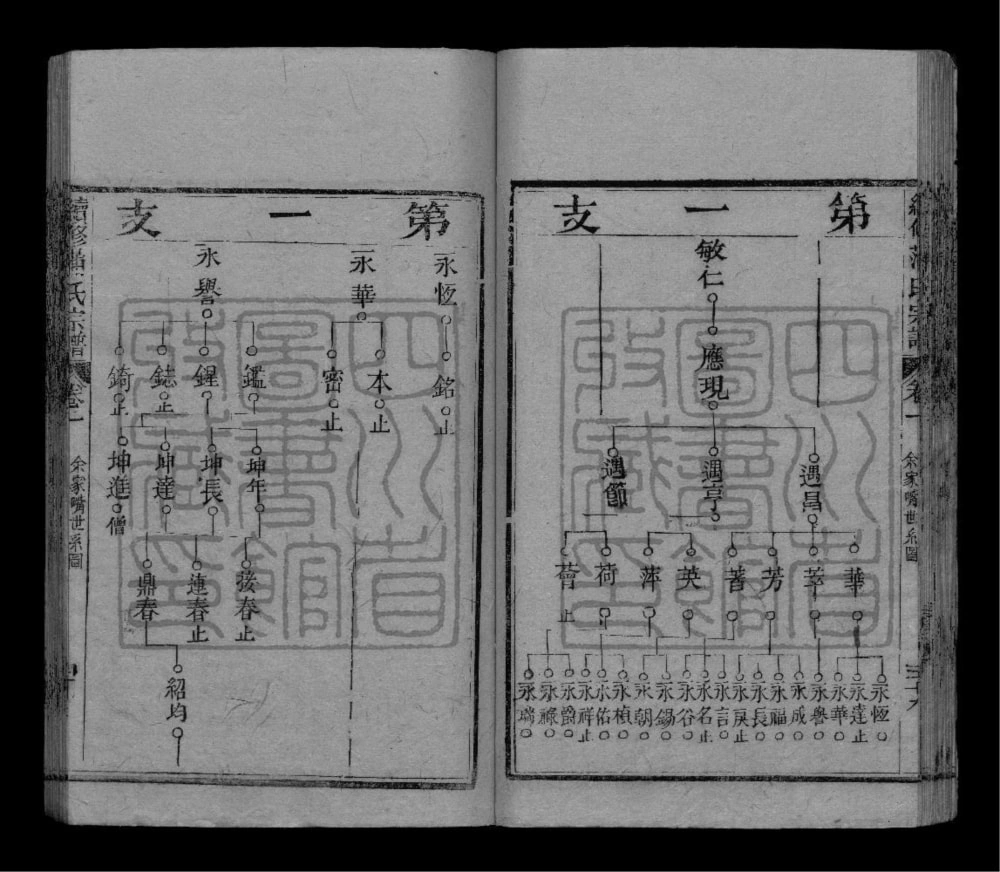 第一支
敏仁
應現
遇昌
遇亨
遇節
華
萃
芳
著
英
萍
荷
薈止
永恆
永達止
永華
永譽
永成
永福
永長
永戾止
永言
永名止
永谷
永錫
永朝
永楨
永佑
永祥止
永爵
永祿
永瑞
余家嘴世系圖
第一支
永恆
永華
永譽
銘止
本止
密止
鑑
鍟
鋕止
錡止
坤年
坤長
坤達
坤進
僧
發春止
連春止
鼎春
紹均
余家嘴世系圖
四川省圖書館收藏印